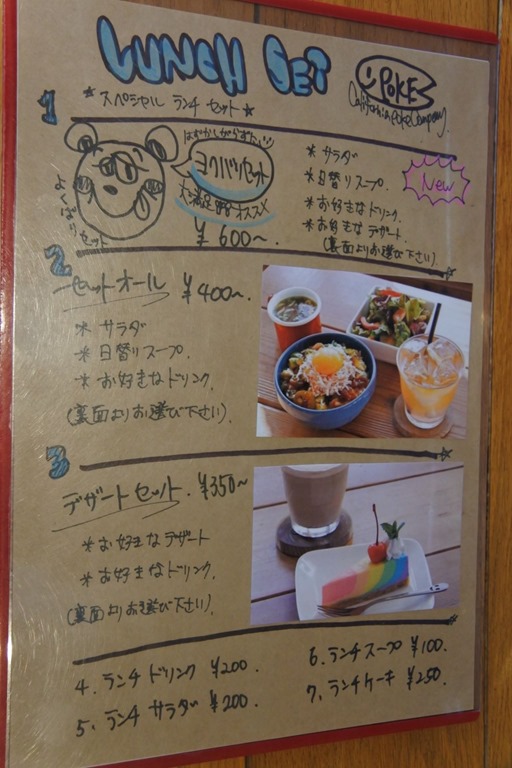 LUNCH SET
POKE
California Poke Company
1
スペシャル ランチ セット
ヨクバリセット
大満足
オススメ
¥600〜
よくばり
セット
* サラダ
* 日替りスープ.
* お好きなドリンク.
* お好きなデザート
(裏面よりお選び下さい)
New
2
セットオール ¥400〜
* サラダ
* 日替りスープ.
* お好きなドリンク.
(裏面よりお選び下さい).
3
デザートセット. ¥350〜
* お好きなデザート
* お好きなドリンク.
(裏面よりお選び下さい).
4. ランチ ドリンク ¥200.
5. ランチ サラダ ¥200.
6. ランチスープ ¥100.
7. ランチケーキ ¥250.